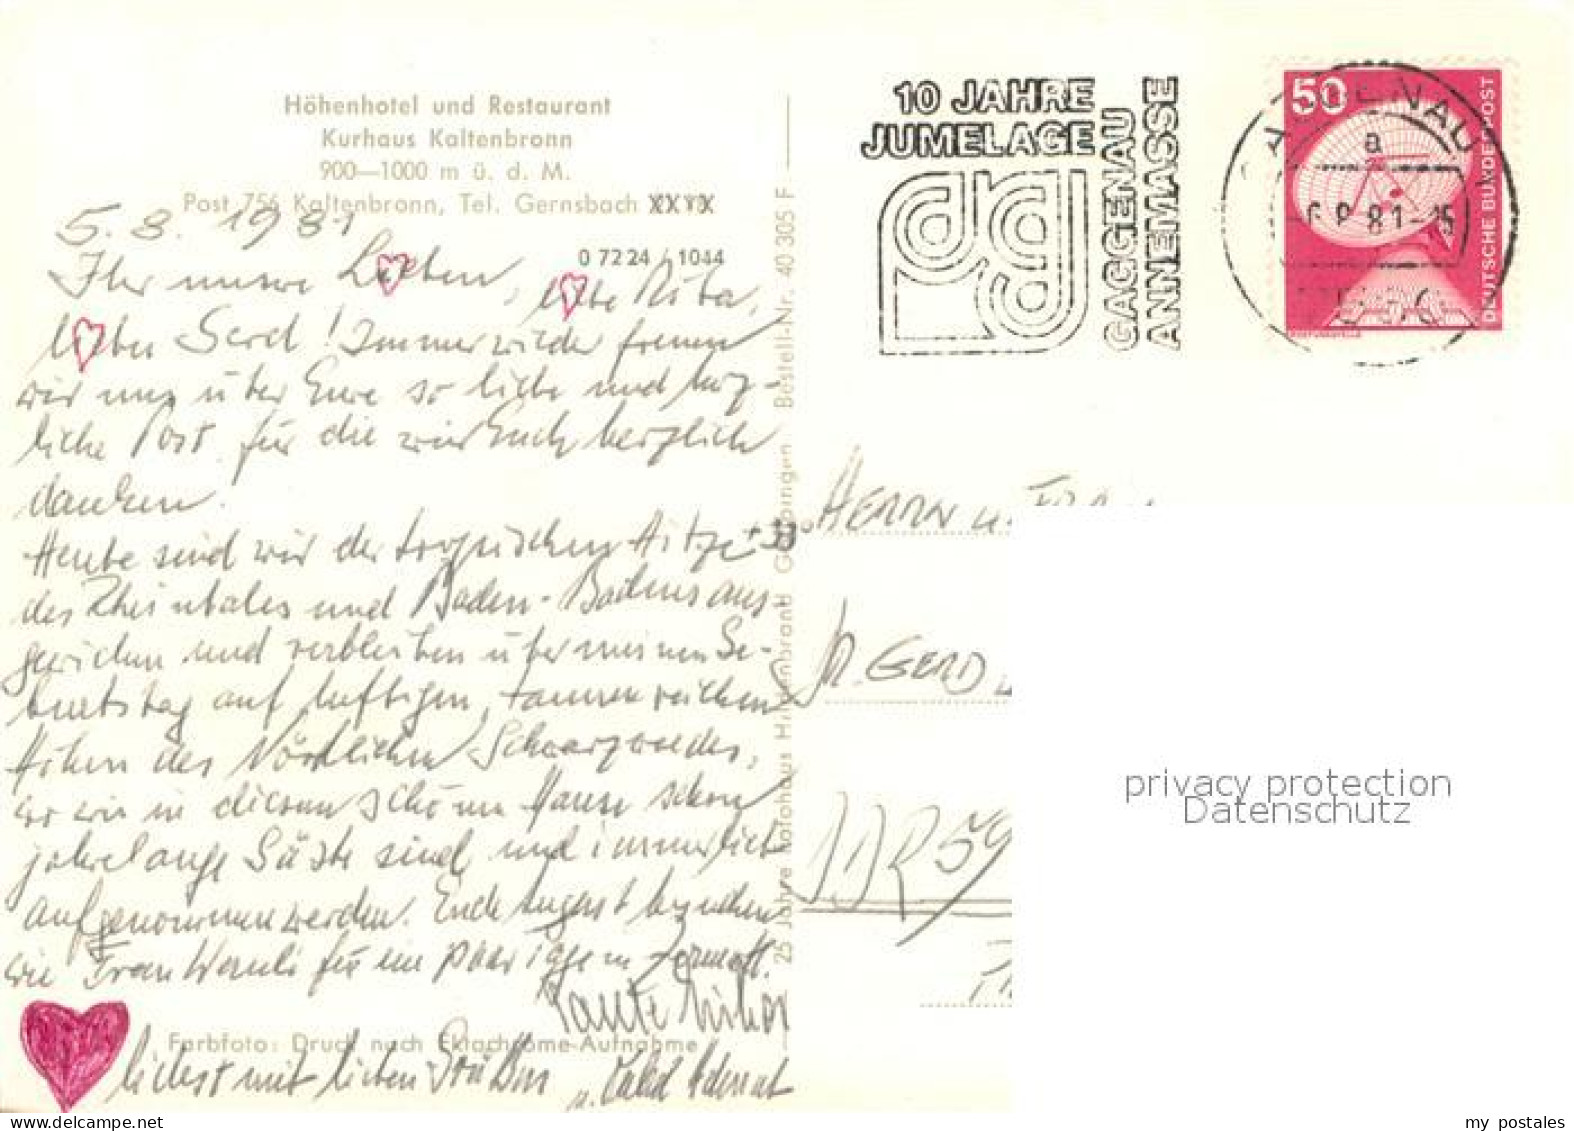 Höhenhotel und Restaurant
Kurhaus Kaltenbronn
900—1000 m ü. d. M.
Post 756 Kaltenbronn, Tel. Gernsbach XXXX
0 72 24 / 1044
5. 8. 1981
Ihr unsere Lieben, liebe Rita,
lieber Gerd! Immer wieder freuen
wir uns über Eure so liebe und herz-
liche Post für die wir Euch herzlich
danken.
Heute sind wir der tropischen Hitze +33°
des Rheintales und Baden-Badens aus-
gewichen und verbleiben über meinen Ge-
burtstag auf luftigen, tannenreichen
Höhen des Nördlichen Schwarzwaldes,
wo wir in diesem schönen Hause schon
jahrelange Gäste sind und immer lieb
aufgenommen werden. Ende August
wie Frau für ein paar Tage in Zermatt.
Tante
herzlichst mit lieben Grüßen u.
Farbfoto: Druck nach Ektachrome-Aufnahme
25 Jahre Fotohaus Hillenbrand Gerbringen Bestell-Nr. 40 305 F
10 JAHRE
JUMELAGE
GAGGENAU
ANNEMASSE
GAGGENAU
a
6.8.81-15
50
DEUTSCHE BUNDESPOST
HERRN u. FRAU
GERD
privacy protection
Datenschutz
my postales